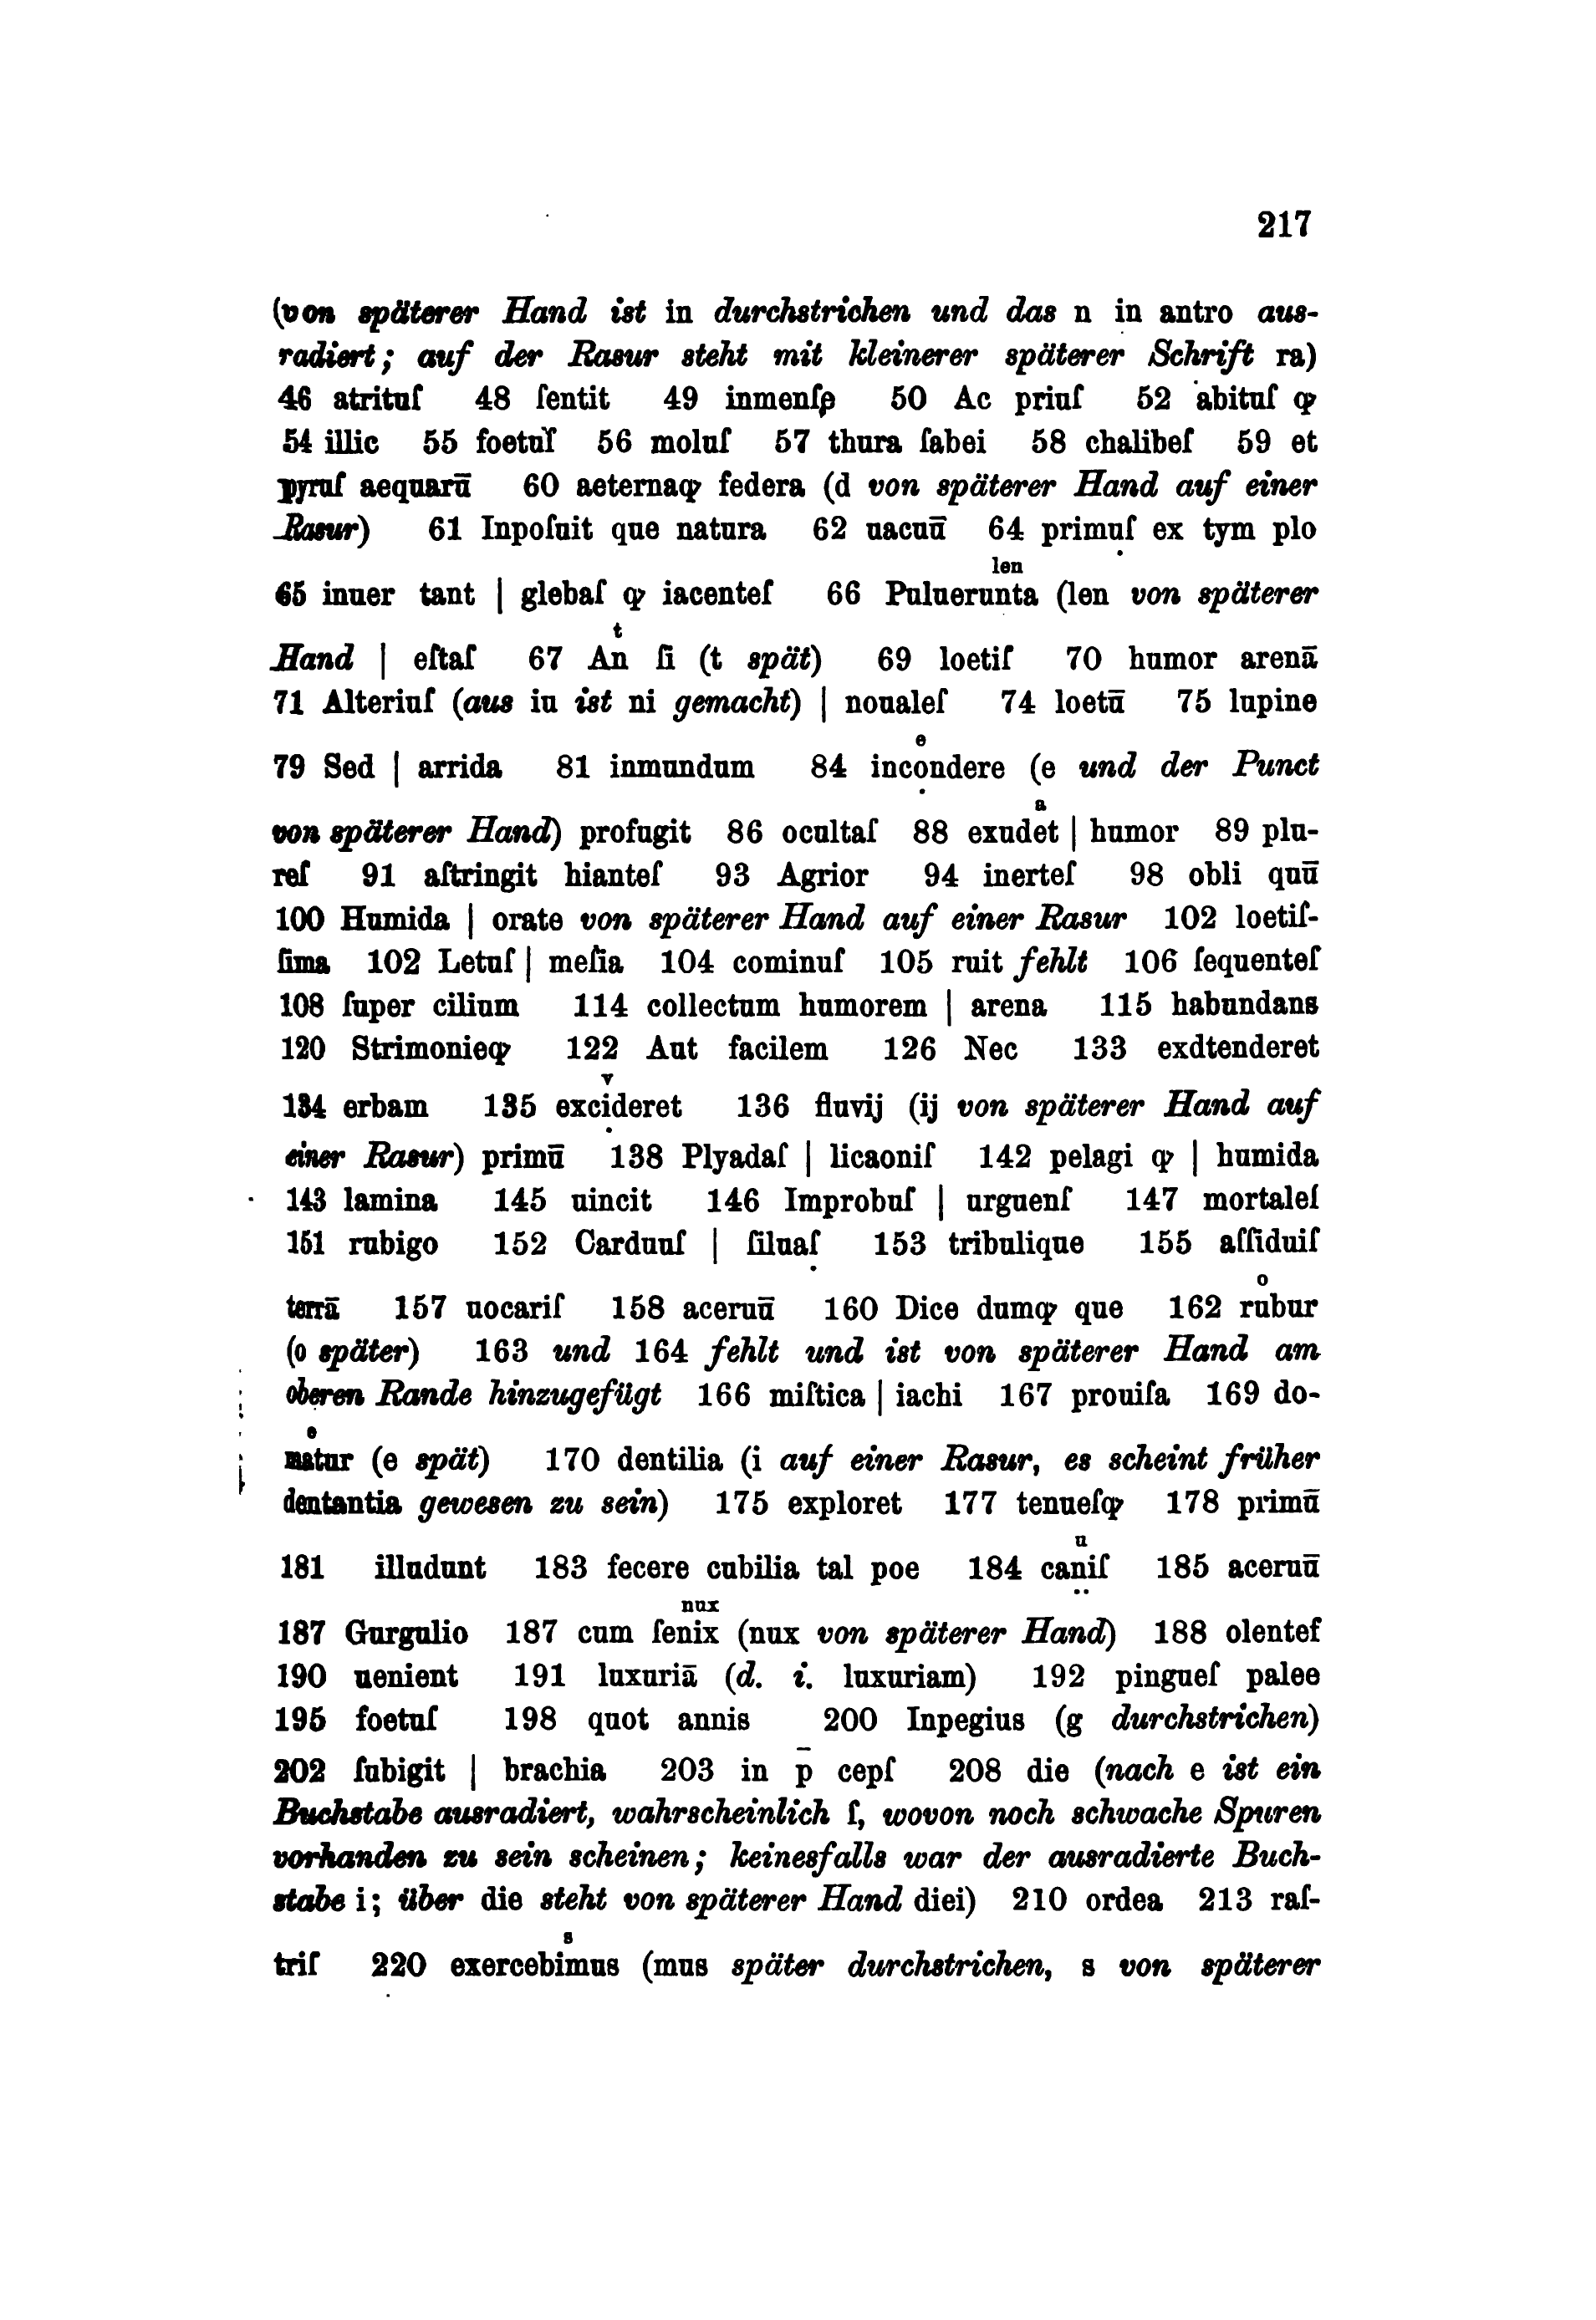 217
(von späterer Hand ist in durchstrichen und das n in antro aus-
radiert; auf der Rasur steht mit kleinerer späterer Schrift ra)
46 atrituſ 48 ſentit 49 inmenſę 50 Ac priuſ 52 abituſ ꝙ
54 illic 55 foetuſ 56 moluſ 57 thura ſabei 58 chalibeſ 59 et
pyruſ aequarū 60 aeternaꝙ federa (d von späterer Hand auf einer
Rasur) 61 Inpoſuit que natura 62 uacuū 64 primuſ ex tym plo
len
65 inuer tant | glebaſ ꝙ iacenteſ 66 Puluerunta (len von späterer
t
Hand | eſtaſ 67 An ſi (t spät) 69 loetiſ 70 humor arenā
71 Alteriuſ (aus iu ist ni gemacht) | noualeſ 74 loetū 75 lupine
e
79 Sed | arrida 81 inmundum 84 incọndere (e und der Punct
a
von späterer Hand) profugit 86 ocultaſ 88 exudet | humor 89 plu-
reſ 91 aſtringit hianteſ 93 Agrior 94 inerteſ 98 obli quū
100 Humida | orate von späterer Hand auf einer Rasur 102 loetiſ-
ſima 102 Letuſ | meſia 104 cominuſ 105 ruit fehlt 106 ſequenteſ
108 ſuper cilium 114 collectum humorem | arena 115 habundans
120 Strimonieꝙ 122 Aut facilem 126 Nec 133 exdtenderet
v
134 erbam 135 excịderet 136 fluvij (ij von späterer Hand auf
einer Rasur) primū 138 Plyadaſ | licaoniſ 142 pelagi ꝙ | humida
143 lamina 145 uincit 146 Improbuſ | urguenſ 147 mortaleſ
151 rubigo 152 Carduuſ | ſiluaſ̣ 153 tribulique 155 aſſiduiſ
o
terrā 157 uocariſ 158 aceruū 160 Dice dumꝙ que 162 rubur
(o später) 163 und 164 fehlt und ist von späterer Hand am
oberen Rande hinzugefügt 166 miſtica | iachi 167 prouiſa 169 do-
e
matur (e spät) 170 dentilia (i auf einer Rasur, es scheint früher
dentantia gewesen zu sein) 175 exploret 177 tenueſꝙ 178 primū
u
181 illudunt 183 fecere cubilia tal poe 184 caniſ 185 aceruū
nux
187 Gurgulio 187 cum ſenix (nux von späterer Hand) 188 olenteſ
190 uenient 191 luxuriā (d. i. luxuriam) 192 pingueſ palee
195 foetuſ 198 quot annis 200 Inpegius (g durchstrichen)
202 ſubigit | brachia 203 in p̄ cepſ 208 die (nach e ist ein
Buchstabe ausradiert, wahrscheinlich ſ, wovon noch schwache Spuren
vorhanden zu sein scheinen; keinesfalls war der ausradierte Buch-
stabe i; über die steht von späterer Hand diei) 210 ordea 213 raſ-
s
triſ 220 exercebimus (mus später durchstrichen, s von späterer